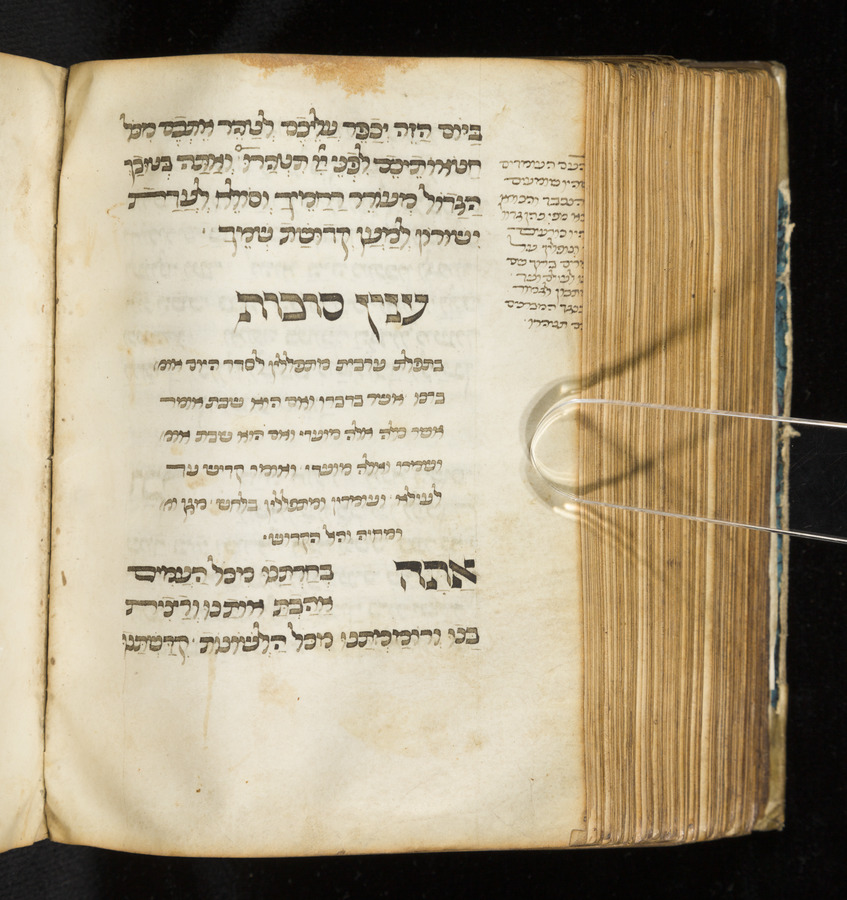 ביום הזה יכפר עליכם לטהר אתכם מכל
חטאותיכם לפני יי תטהרו ואתה בטובך
הגדול מעורר רחמיך וסולח לעדת
ישורון למען קדושת שמך
ענין סוכות
בתפלת ערבית מתפללין לסדר היום אומ'
ברכו אשר בדברו ואם היא שבת אומר
אשר כלה אלה מועדי ואם היא שבת אומ'
ושמרו ואלה מועדי ואומ' קדיש עד
לעילא ועומדין ומתפללין בלחש מגן ומ'
ומחיה והאל הקדוש
אתה בחרתנו מכל העמים
אהבת אותנו ורצית
בנו ורוממתנו מכל הלשונות קדשתנו
העם העומדים
היו שומעים